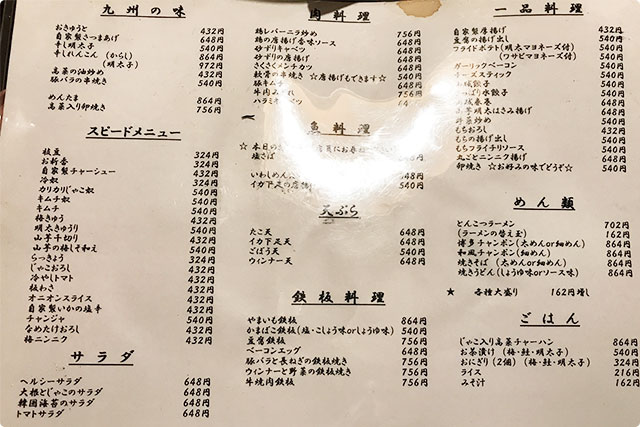 九州の味
おきゅうと 432円
自家製さつまあげ 648円
辛し明太子 540円
辛しれんこん (からし) 864円
(明太子) 972円
高菜の油炒め 432円
豚バラの串焼き 540円
めんたま 864円
高菜入り卵焼き 756円
スピードメニュー
枝豆 324円
お新香 324円
自家製チャーシュー 540円
冷奴 324円
カリカリじゃこ奴 432円
キムチ奴 540円
キムチ 432円
梅きゅう 432円
明太きゅうり 540円
山芋千切り 432円
山芋の梅しそ和え 540円
らっきょう 324円
じゃこおろし 432円
冷やしトマト 432円
板わさ 432円
オニオンスライス 432円
自家製いかの塩辛 432円
チャンジャ 540円
なめたけおろし 432円
梅ニンニク 432円
サラダ
ヘルシーサラダ 648円
大根とじゃこのサラダ 648円
韓国海苔のサラダ 648円
トマトサラダ 648円
肉料理
鶏レバーニラ炒め 756円
鶏の唐揚げ香味ソース 648円
砂ずりキャベツ 648円
砂ずりの唐揚げ 540円
さくさくメンチカツ 648円
軟骨の串焼き ☆唐揚げもできます☆ 540円
豚キムチ 648円
牛肉みれ 864円
ハラミキャベツ
魚料理
☆本日の
塩さば
いわしめんた
イカ下足の唐揚げ 540円
天ぷら
たこ天 648円
イカ下足天 648円
ごぼう天 540円
ウィンナー天 648円
鉄板料理
やまいも鉄板 864円
かまぼこ鉄板(塩・こしょう味orしょうゆ味) 540円
豆腐鉄板 648円
ベーコンエッグ 648円
豚バラと長ねぎの鉄板焼き 756円
ウィンナーと野菜の鉄板焼き 756円
牛焼肉鉄板 756円
一品料理
自家製厚揚げ 432円
豆腐の揚げ出し 540円
フライドポテト(明太マヨネーズ付) 540円
(ワサビマヨネーズ付) 540円
ガーリックベーコン 540円
チーズスティック 540円
餃子 540円
水餃子 540円
春巻 648円
明太はさみ揚げ 648円
炒め 648円
もちおろし 432円
もちの揚げ出し 540円
もちフライチリソース 540円
丸ごとニンニク揚げ 540円
卵焼き ☆お好みの味でどうぞ☆ 540円
めん類
とんこつラーメン 702円
(ラーメンの替え玉) 162円
博多チャンポン(太めんor細めん) 864円
和風チャンポン(太めんor細めん) 864円
焼きそば (太めんor細めん) 864円
焼きうどん(しょうゆ味orソース味) 864円
★ 各種大盛り 162円増し
ごはん
じゃこ入り高菜チャーハン 864円
お茶漬け (梅・鮭・明太子) 540円
おにぎり(2個) (梅・鮭・明太子) 324円
ライス 216円
みそ汁 162円